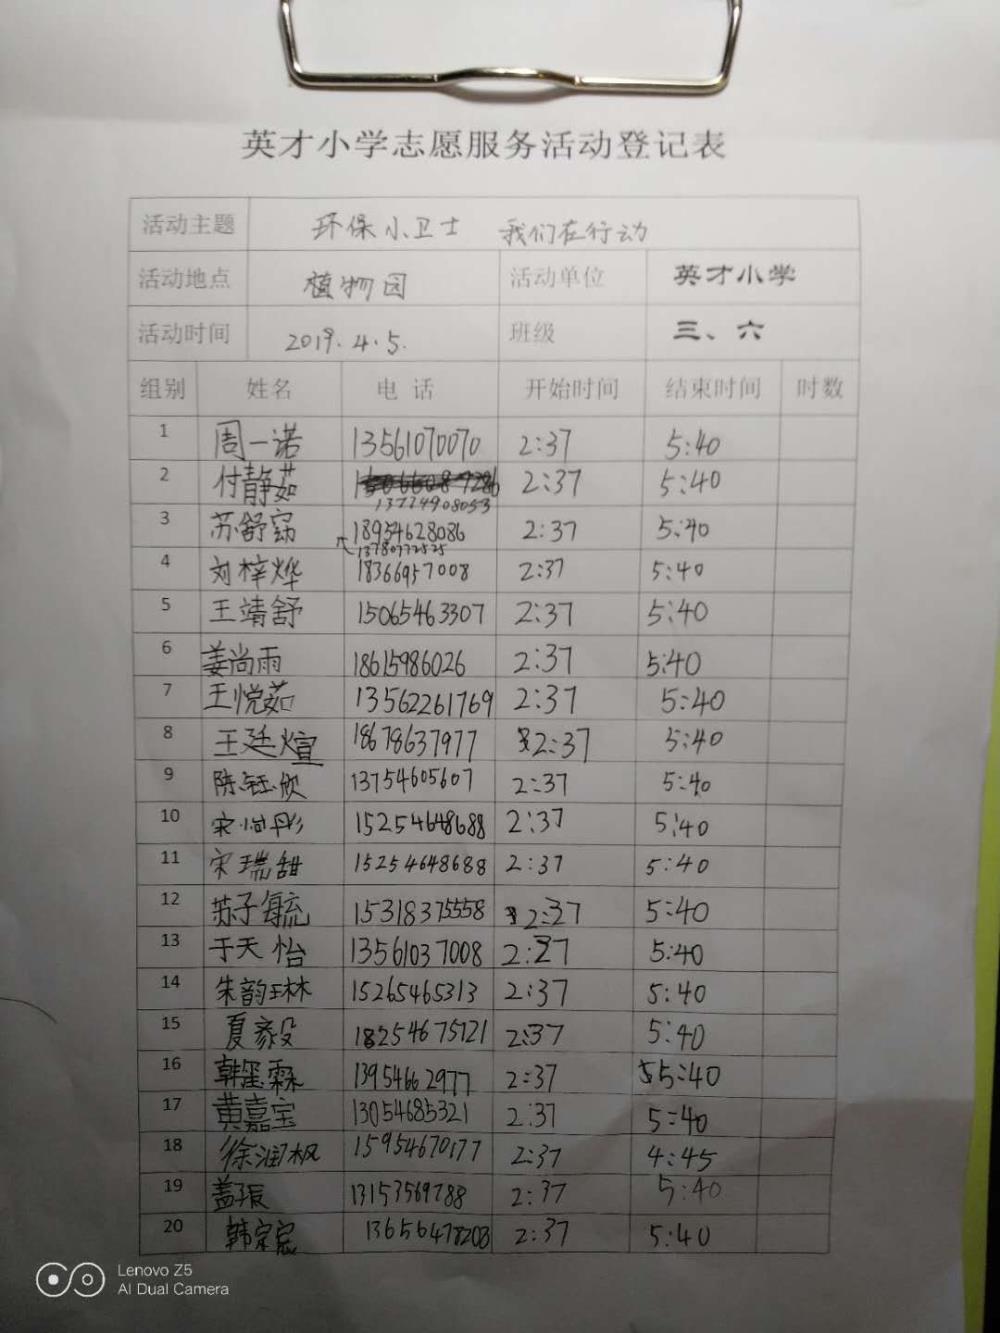 英才小学志愿服务活动登记表
活动主题 环保小卫士 我们在行动
活动地点 植物园 活动单位 英才小学
活动时间 2019.4.5. 班级 三、六
组别 姓名 电话 开始时间 结束时间 时数
1 周一诺 13561070070 2:37 5:40
2 付静茹 13774908053 2:37 5:40
3 苏舒窈 18954628086 2:37 5:40
13780772525
4 刘梓烨 18366957008 2:37 5:40
5 王靖舒 15065463307 2:37 5:40
6 姜尚雨 18615986026 2:37 5:40
7 王悦茹 13562261769 2:37 5:40
8 王廷煊 18678637977 2:37 5:40
9 陈钰欣 13754605607 2:37 5:40
10 宋 15254648688 2:37 5:40
11 宋瑞甜 15254648688 2:37 5:40
12 苏子毓 15318375558 2:37 5:40
13 于天怡 13561037008 2:37 5:40
14 朱韵琳 15265465313 2:37 5:40
15 夏 18254675121 2:37 5:40
16 韩玺霖 13954662977 2:37 5:40
17 黄嘉宝 13054685321 2:37 5:40
18 徐润枫 15954670177 2:37 4:45
19 盖 13153569788 2:37 5:40
20 韩 13656478203 2:37 5:40
Lenovo Z5
AI Dual Camera